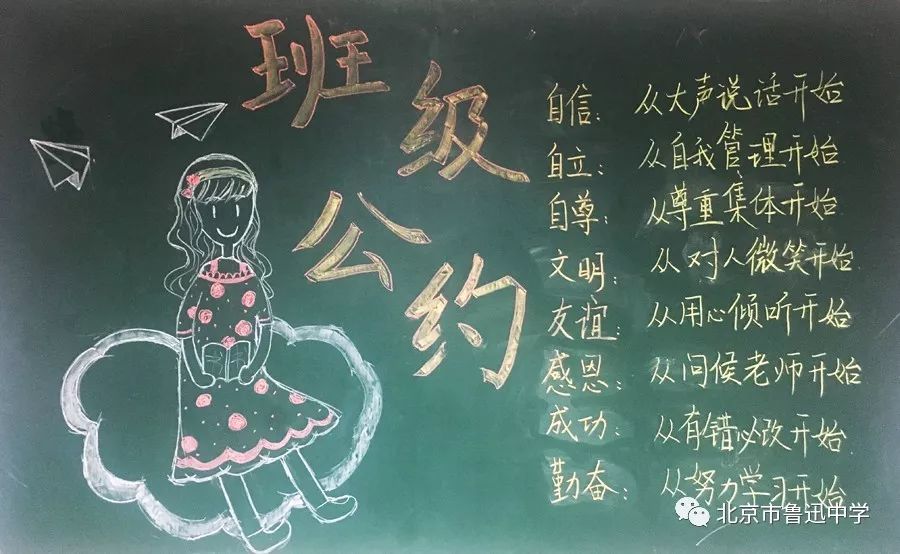 班级公约
自信：从大声说话开始
自立：从自我管理开始
自尊：从尊重集体开始
文明：从对人微笑开始
友谊：从用心倾听开始
感恩：从问候老师开始
成功：从有错必改开始
勤奋：从努力学习开始
北京市鲁迅中学